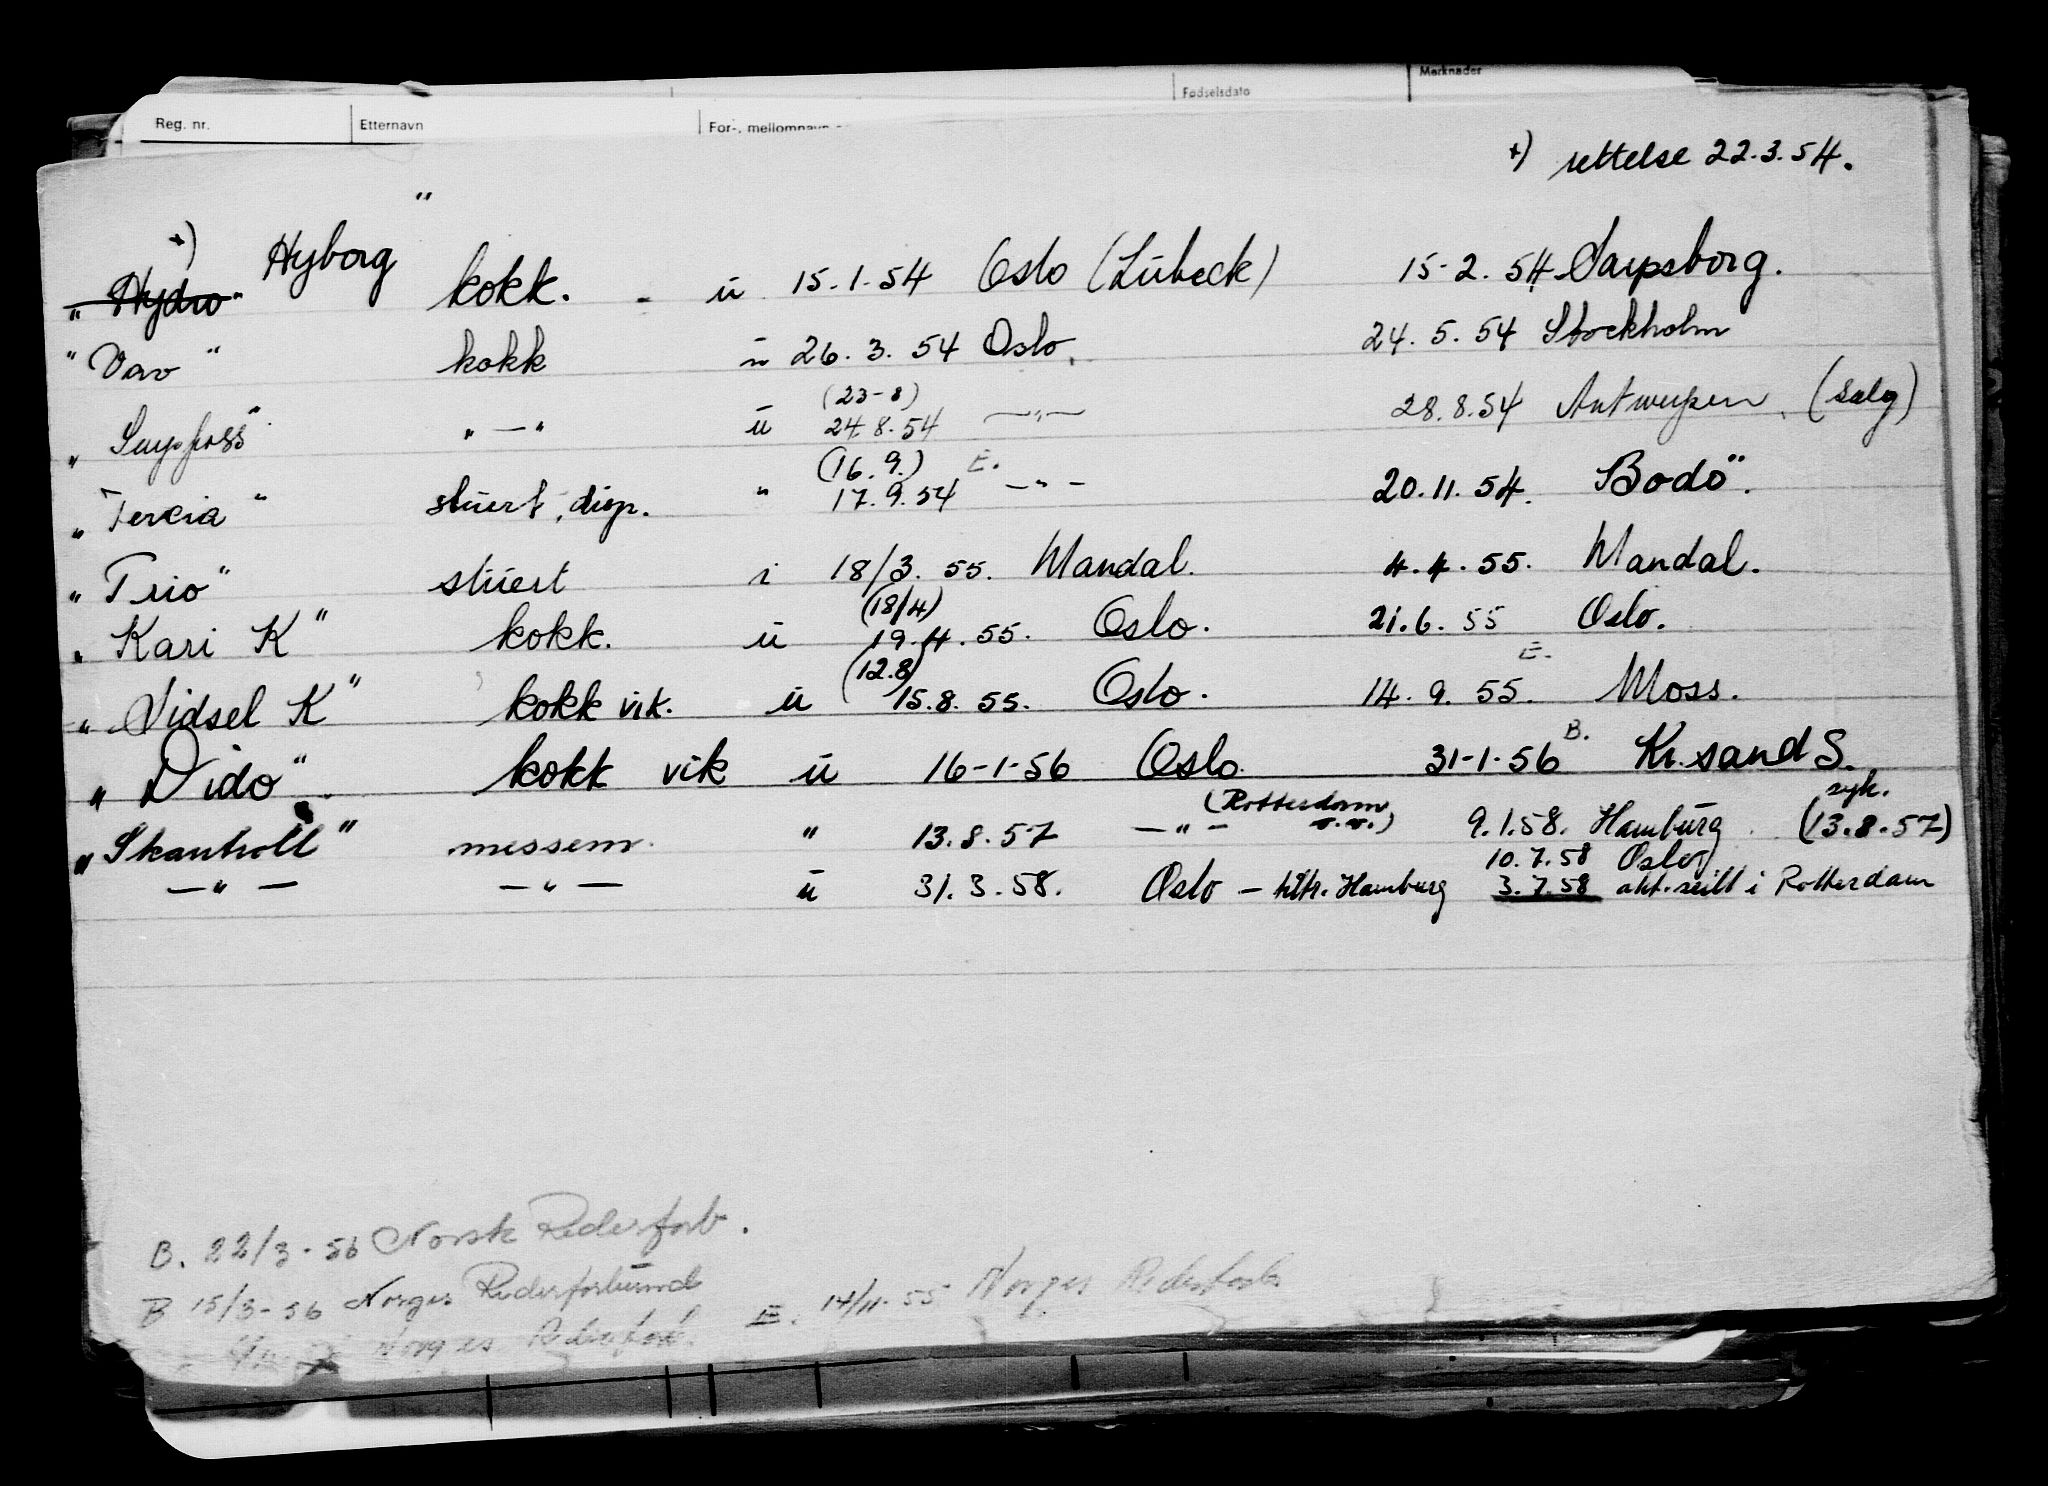 Fødselsdato Merknader
Reg. nr. Etternavn For-, mellomnavn
*) rettelse 22.3.54.
*) Hyborg"
"Hydro" kokk. - ü 15.1.54 Oslo (Lübeck) 15-2.54 Sarpsborg.
"Vav" kokk ü 26.3.54 Oslo. 24.5.54 Stockholm
(23-8)
"Sarpfoss" "—" ü 24.8.54 —"— 28.8.54 Antwerpen. (Salg)
(16.9.) E.
"Tercia" stuert, disp. " 17.9.54 —"— 20.11.54. Bodö.
"Trio" stüert i 18/3.55. Mandal. 4.4.55. Mandal.
(18/4)
"Kari K" kokk. ü 19.4.55. Oslo. 21.6.55 Oslo.
(12.8) E.
"Vidsel K" kokk vik. ü 15.8.55. Oslo. 14.9.55. Moss.
"Dido" kokk vik ü 16-1-56 Oslo. 31-1-56 B. Kr.sand S.
(Rotterdam syk.
"Skantroll" messem. " 13.8.57 —"— 9.1.58. Hambürg. (13.8.57)
10.7.58 Oslo
—"— —"— ü 31.3.58. Oslo — tiltr. Hamburg 3.7.58 i Rotterdam
B. 22/3-56 Norsk Rederforb.
B 15/3-56 Norges Rederforbünd
E. 14/11-55 Norges Rederforb.
Norges Rederforb.